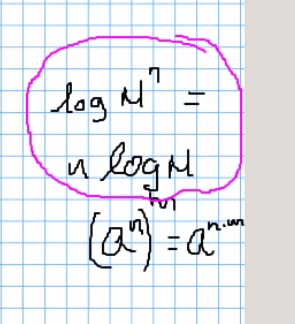 log M^n =
n log M
(a^n)^m = a^{n·m}